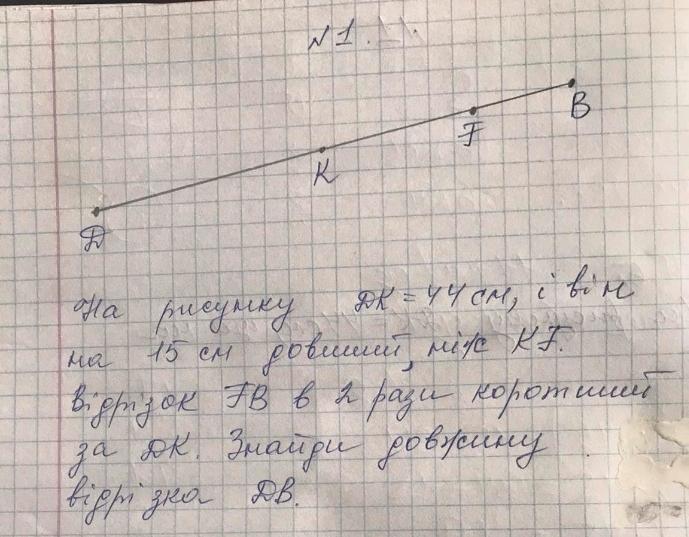 №1.
В
F
К
D
На рисунку DК = 44 см, і він
на 15 см довший, ніж KF.
Відрізок FB в 2 рази коротший
за DК. Знайди довжину
відрізка DB.